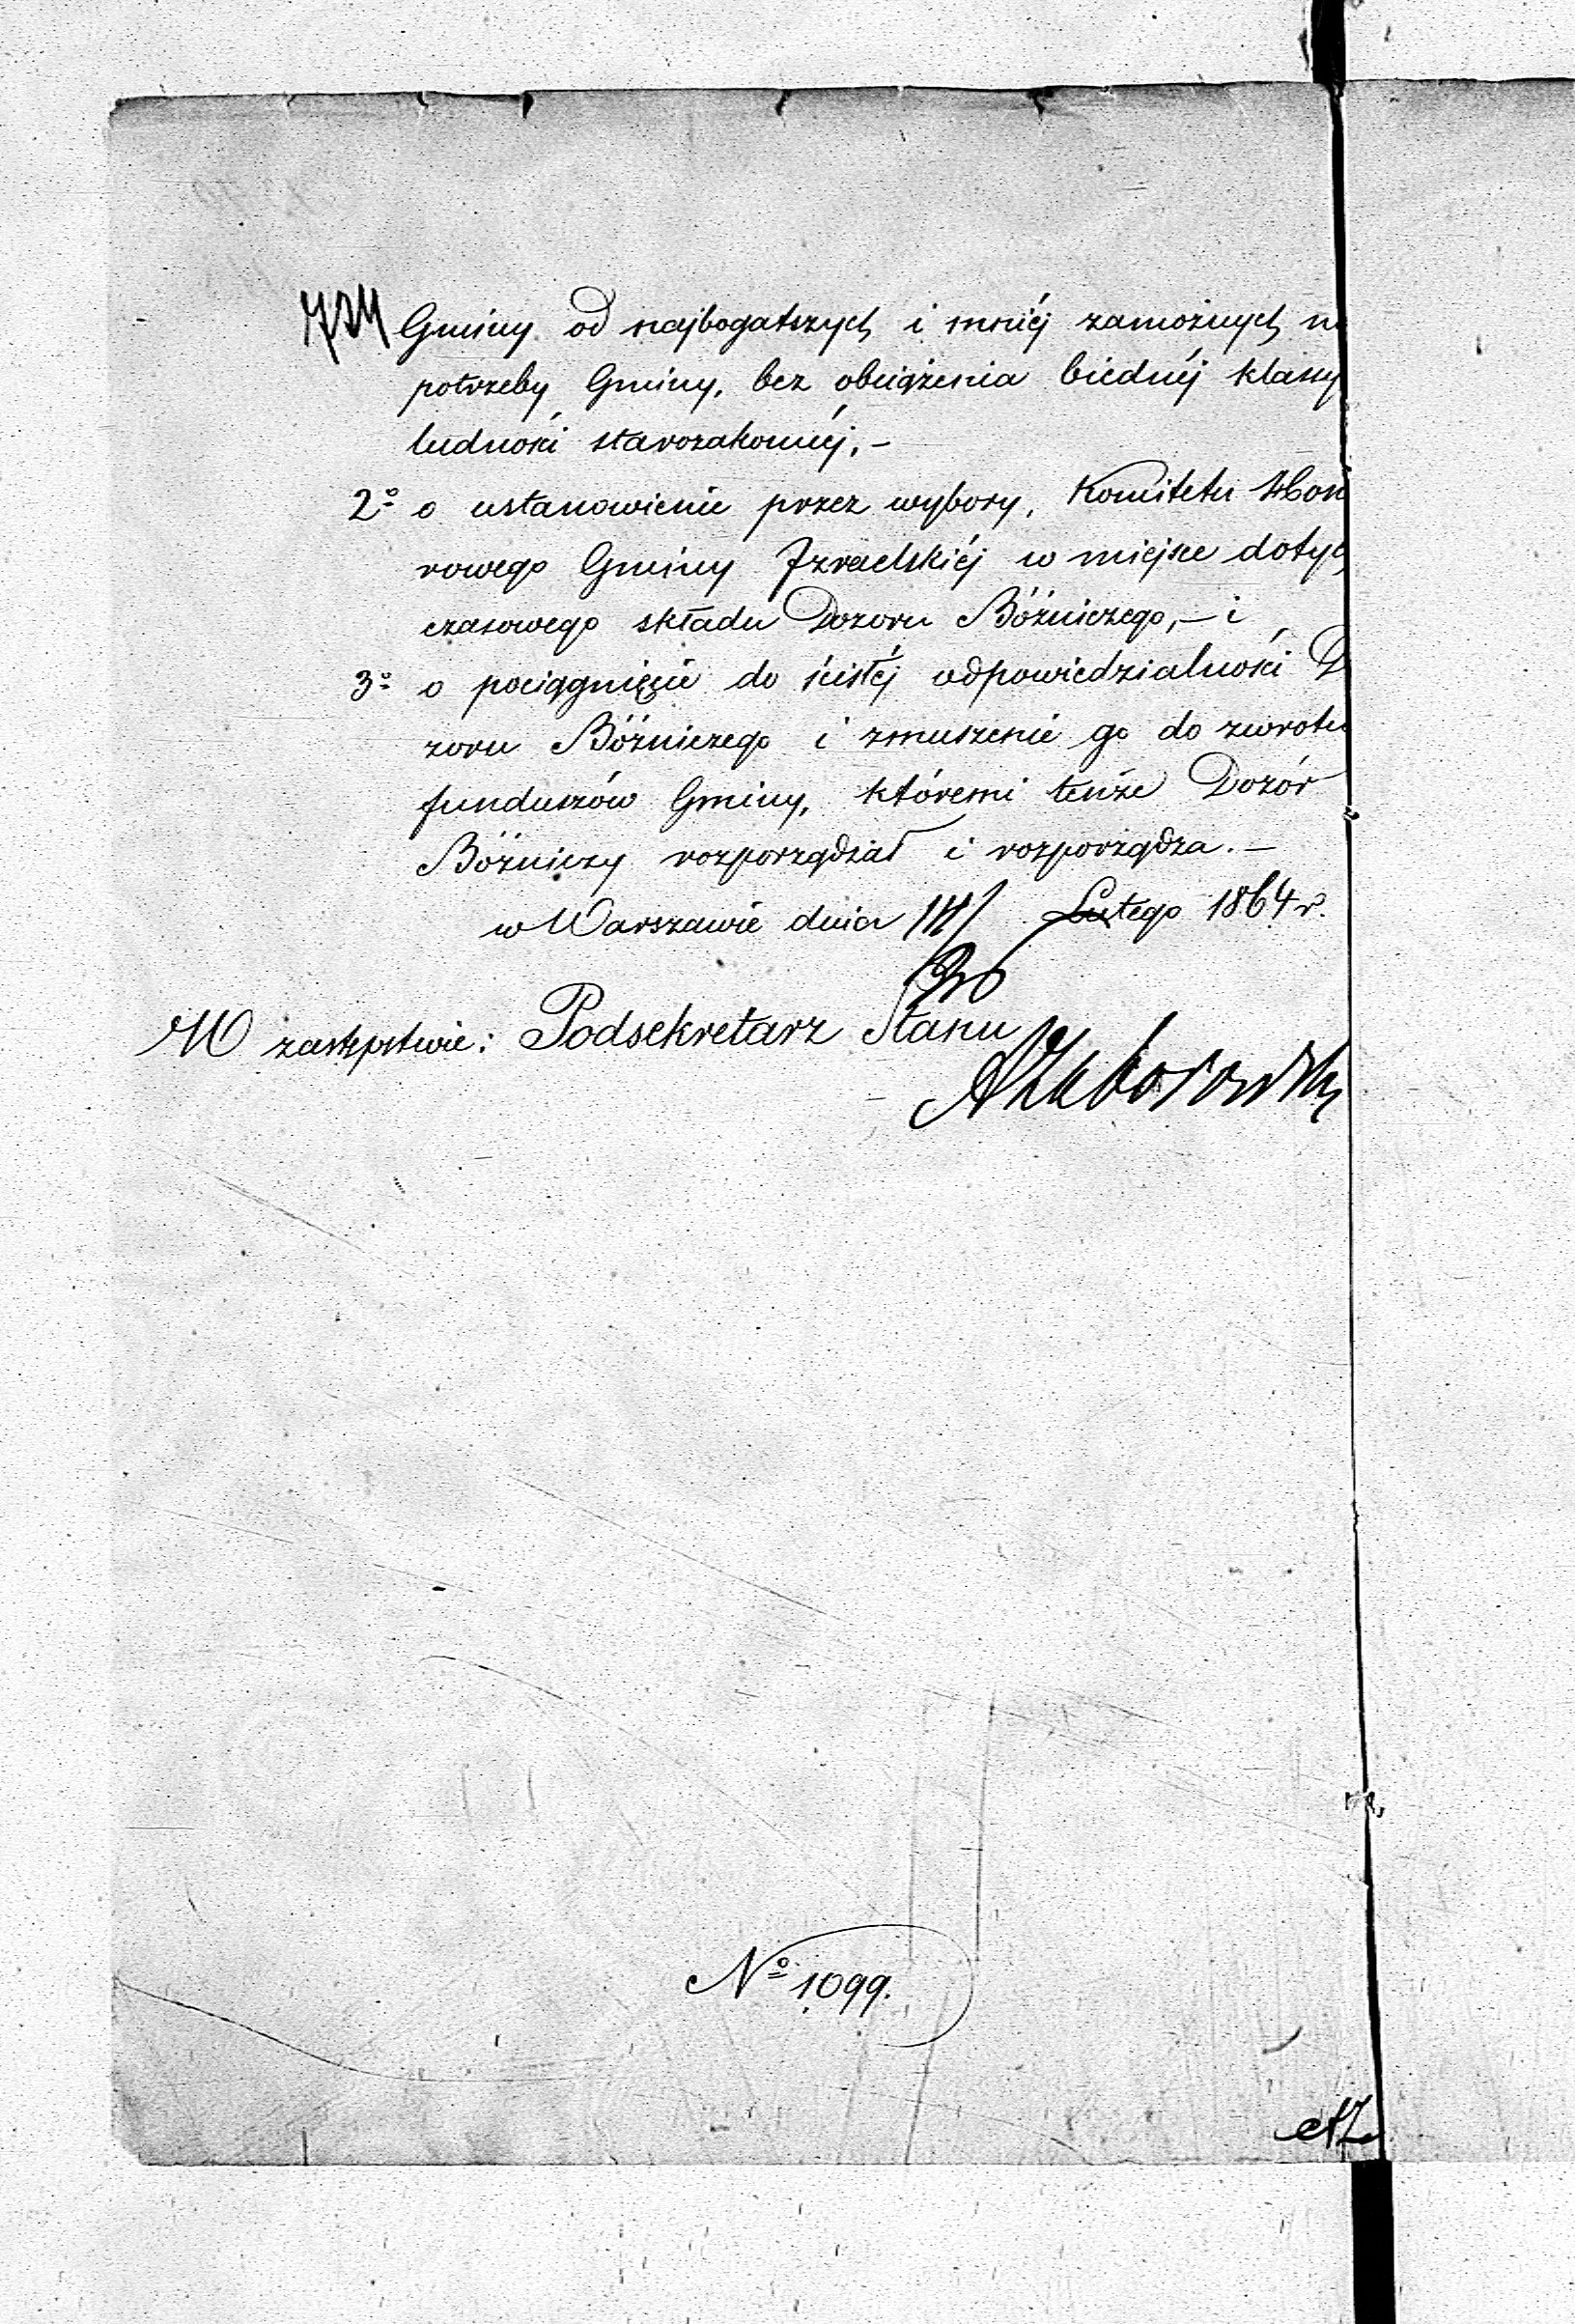 Gminy od najbogatszych i mniéj zamożnych n
potrzeby Gminy, bez obciążenia biednéj klassy
ludności starozakonnéj, –
2º o ustanowienie przez wybory, Komitetu Hon
rowego Gminy Izraelskiéj w miejsce dotyc
czasowego składu Dozoru Bóźniczego, – i
3º o pociągnięcie do ścisłéj odpowiedzialności D
zoru Bóźniczego i zmuszenie go do zwrotu
funduszów Gminy, któremi tenże Dozór
Bóźniczy rozporządzał i rozporządza. –
w Warszawie dnia 14/ Lutego 1864 r.
26
W zastępstwie: Podsekretarz Stanu
AZaborowski
Nº 1099.
AZ